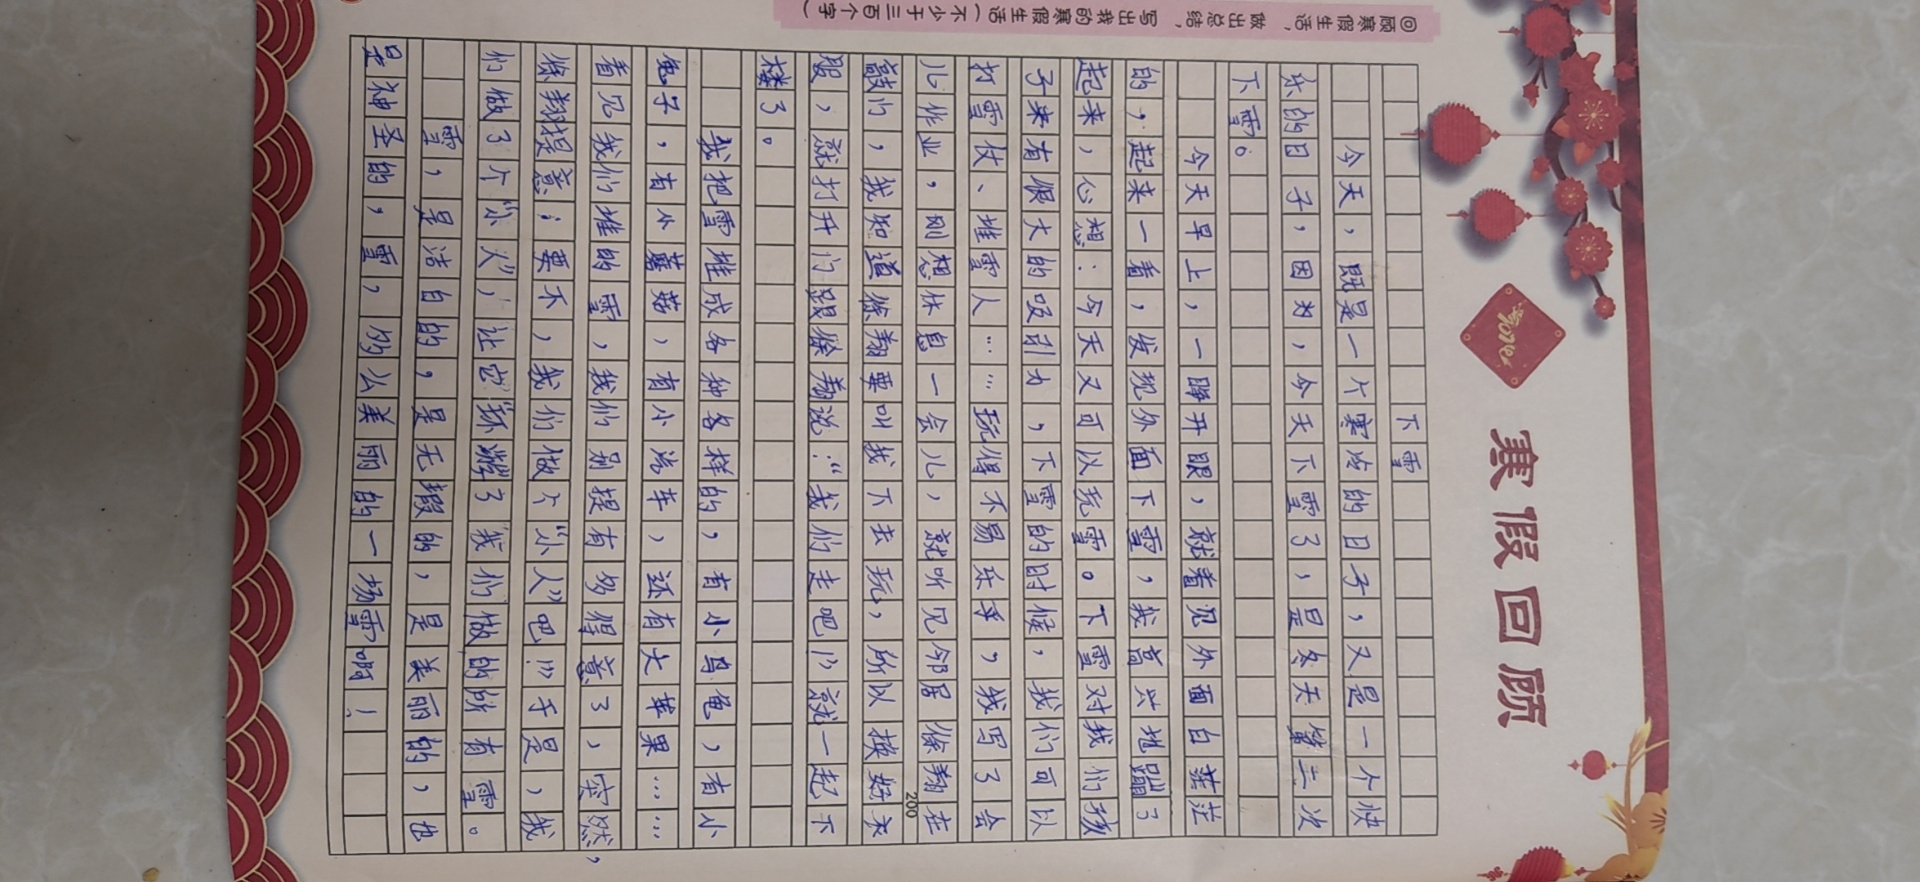 寒假回顾
回顾寒假生活，做出总结，写出我的寒假生活（不少于三百个字）
下雪
今天，既是一个寒冷的日子，又是一个快
乐的日子，因为，今天下雪了，是冬天第二次
下雪。
今天早上，一睁开眼，就看见外面白茫茫
的，起来一看，发现外面下雪，我高兴地蹦了
起来，心想：今天又可以玩雪。下雪对我们孩
子来有很大的吸引力，下雪的时候，我们可以
打雪仗、堆雪人……玩得不易乐乎，我写了会
儿作业，刚想休息一会儿，就听见邻居徐翔在
敲门，我知道徐翔要叫我下去玩，所以换好衣
服，就打开门跟徐翔说：“我们走吧！”就一起下
楼了。
我把雪堆成各种各样的，有小乌龟，有小
兔子，有小蘑菇，有小汽车，还有大苹果……
看见我们堆的雪，我们别提有多得意了，突然，
徐翔提意：要不，我们做个“小人”吧！”于是，我
们做了个“小火”，让它“环游”了我们做的所有雪。
雪，是洁白的，是无瑕的，是美丽的，也
是神圣的，雪，多么美丽的一场雪啊！
200